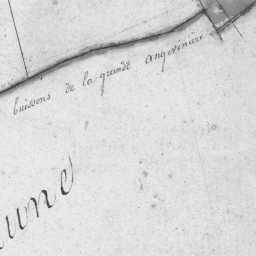 buissons de la grande angevinière
une